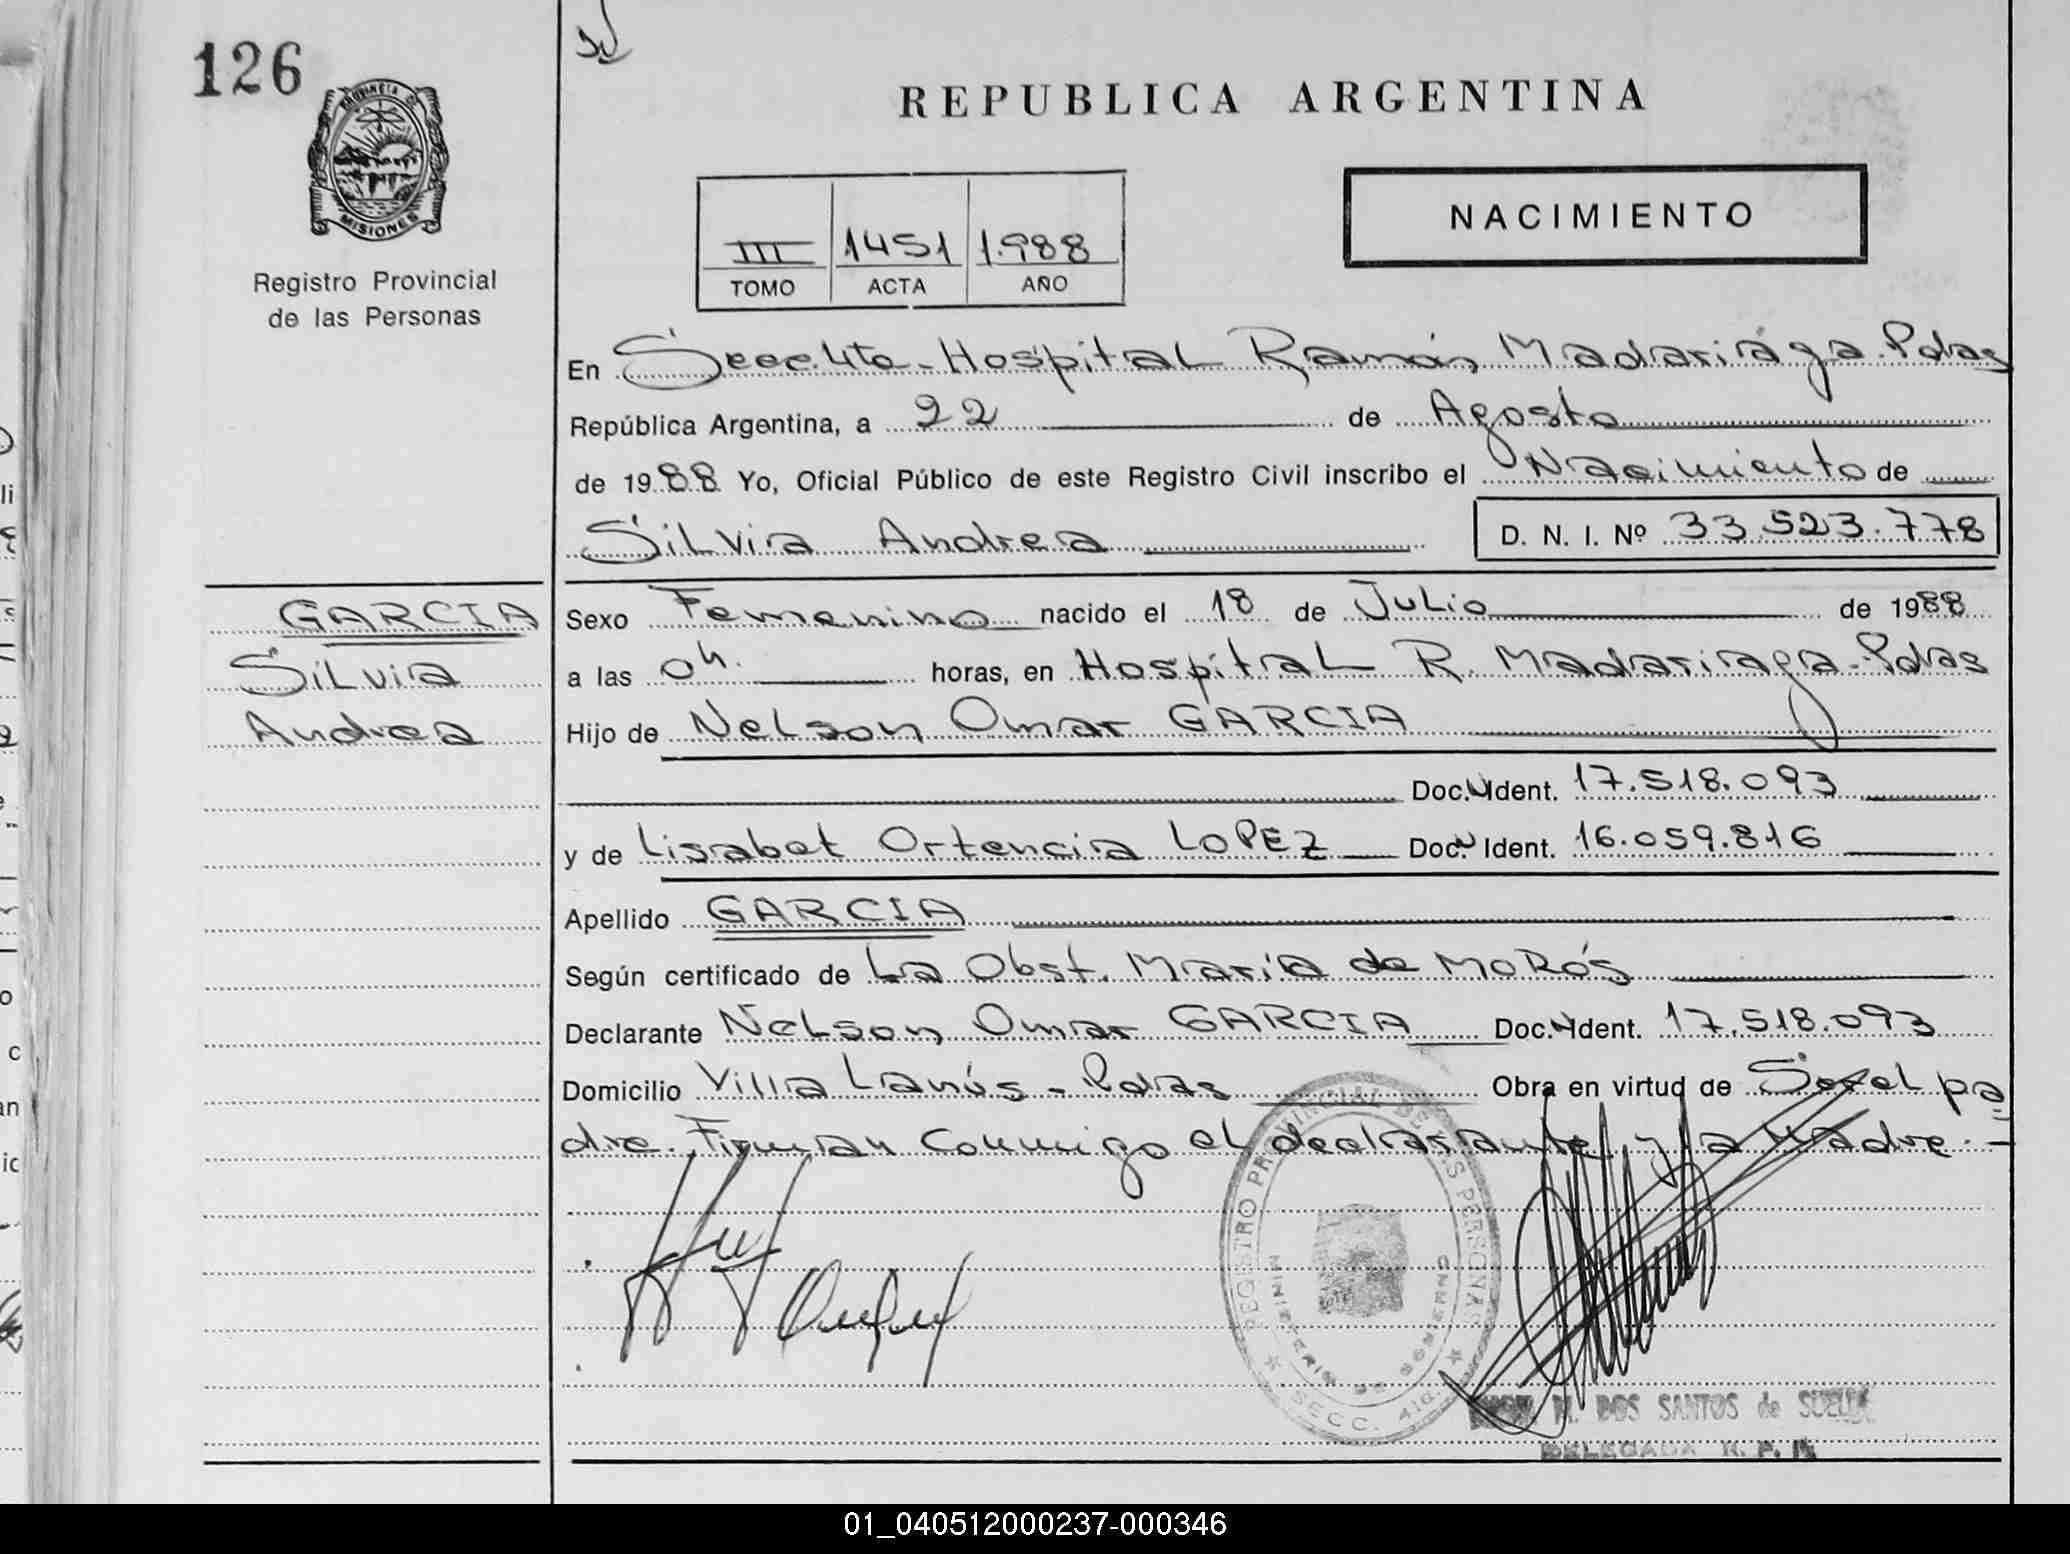 126
PROVINCIA D
MISIONES
Registro Provincial
de las Personas
REPUBLICA ARGENTINA
NACIMIENTO
III 1451 1.988
TOMO ACTA AÑO
En Secc.4ta-Hospital Ramón Madariága-Pdas
República Argentina, a 22 de Agosto
de 1988 Yo, Oficial Público de este Registro Civil inscribo el Nacimiento de
Silvia Andrea D. N. I. Nº 33.523.778
GARCIA
Silvia
Andrea
Sexo Femenino nacido el 18 de Julio de 1988
a las 0h. horas, en Hospital R. Madariaga-Pdas
Hijo de Nelson Omar GARCIA
Doc.N Ident. 17.518.093
y de Lisabet Ortencia LOPEZ Doc.N Ident. 16.059.816
Apellido GARCIA
Según certificado de La Obst. María de MoRós
Declarante Nelson Omar GARCIA Doc.N Ident. 17.518.093
Domicilio Villa Lanús-Pdas Obra en virtud de Ser el pa
dre. Firman conmigo el declarante y la madre.-
REGISTRO PROVINCIAL DE LAS PERSONAS
MINISTERIO DE GOBIERNO
SECC. 4ta.
M. DOS SANTOS de
DELEGADA R. P.
01_040512000237-000346